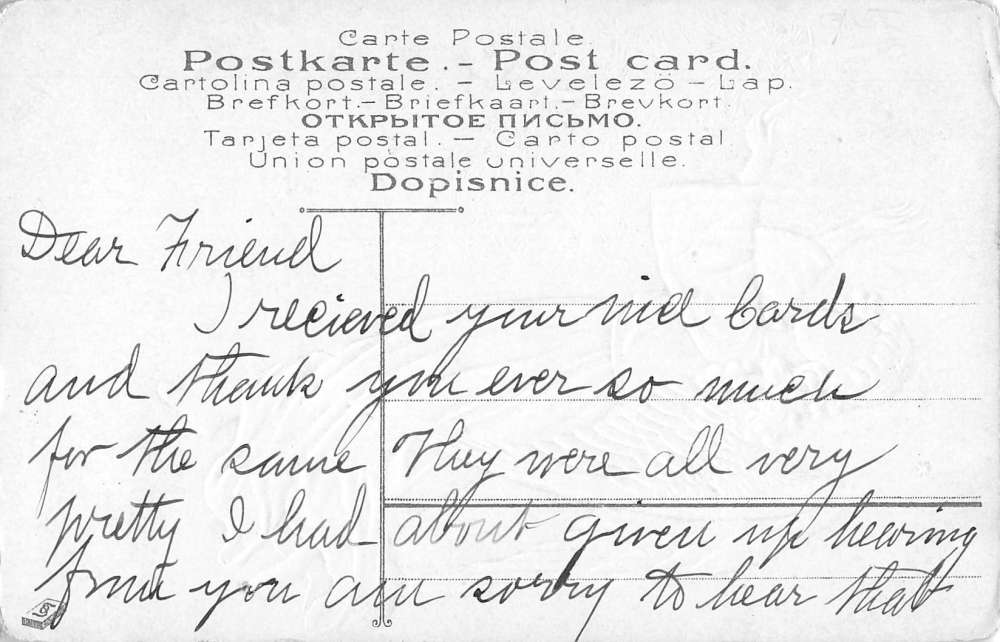 Carte Postale.
Postkarte. - Post card.
Cartolina postale. - Levelező - Lap.
Brefkort. - Briefkaart. - Brevkort.
ОТКРЫТОЕ ПИСЬМО.
Tarjeta postal. - Carto postal
Union postale universelle.
Dopisnice.
Dear Friend
I recieved your nice Cards
and thank you ever so much
for the same They were all very
pretty I had about given up hearing
from you am sorry to hear that